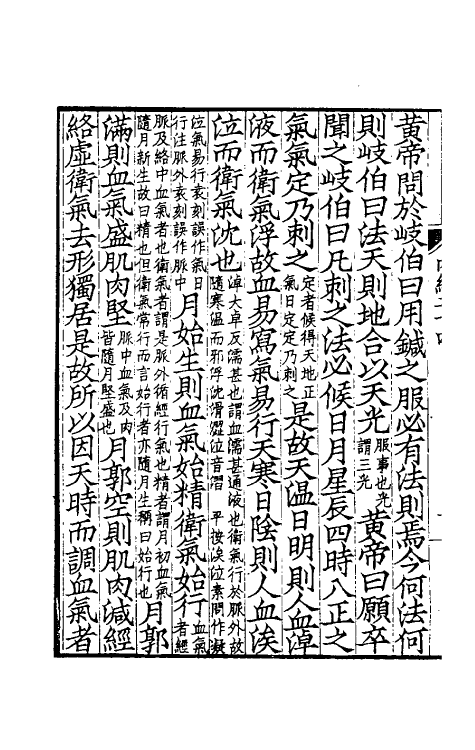 黃帝問於岐伯曰用鍼之服必有法則焉今何法何
則岐伯曰法天則地合以天光服事也光謂三光黃帝曰願卒
聞之岐伯曰凡刺之法必候日月星辰四時八正之
氣氣定乃刺之定者候得天地正氣日定定乃刺之是故天溫日明則人血淖
液而衛氣浮故血易寫氣易行天寒日陰則人血涘
泣而衛氣沈也淖大阜反濡甚也謂血濡甚通液也衛氣行於脈外故隨寒溫而邪浮沈滑澀泣音濇 平按涘泣素問作凝
泣氣易行袁刻誤作氣日行注脈外袁刻誤作脈中月始生則血氣始精衛氣始行血氣者經
脈及絡中血氣者也衛氣者謂是脈外循經行氣也精者謂月初血氣隨月新生故曰精也但衛氣常行而言始行者亦隨月生稱曰始行也月郭
滿則血氣盛肌肉堅脈中血氣及肉皆隨月堅盛也月郭空則肌肉減經
絡虛衛氣去形獨居是故所以因天時而調血氣者